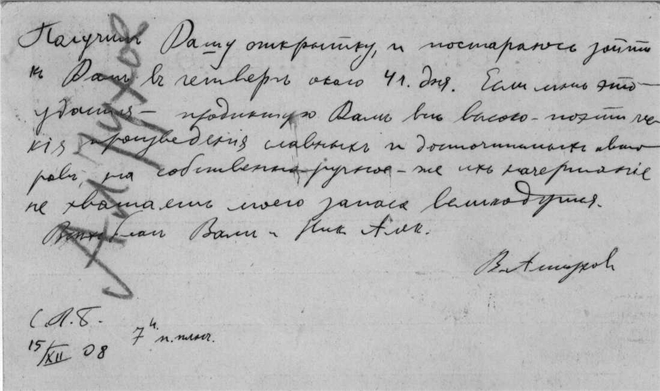 Получил Вашу открытку, и постараюсь зайти
к Вам въ четвергъ около 4 ч. дня. Если мнѣ это
удастся — продиктую Вамъ всѣ высоко-поэтиче-
скія произведенія славныхъ и досточтимыхъ авто-
ровъ, на собственно-ручное-же ихъ начертаніе
не хватаетъ моего запаса великодушія.
Вамъ и Ник. Алек.
С.П.Б.
15/XII 08
7 ч.